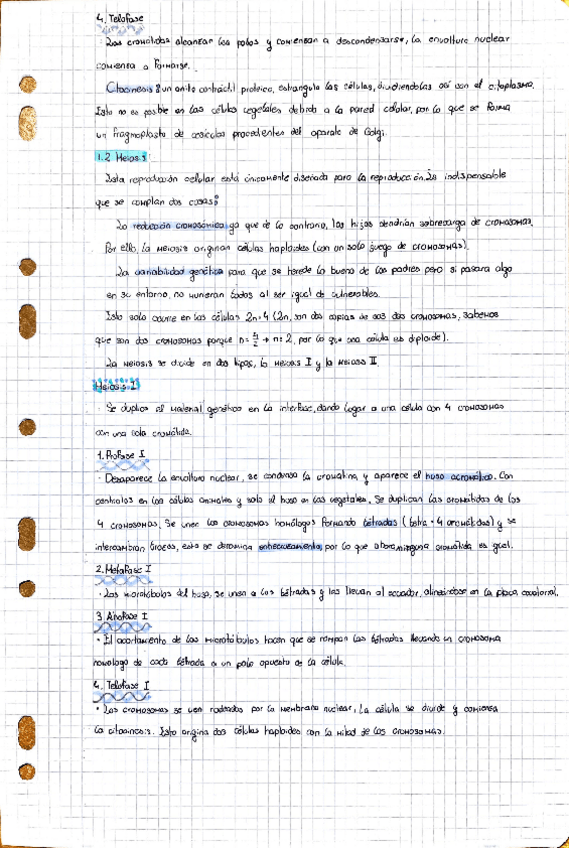 4. Telofase
· Las cromátidas alcanzan los polos y comienzan a descondensarse, la envoltura nuclear
comienza a formarse.
Citocinesis: un anillo contráctil proteico, estrangula las células, dividiendolas así con el citoplasma.
Esto no es posible en las células vegetales debido a la pared celular, por lo que se forma
un fragmoplasto de vesículas procedentes del aparato de Golgi.
1.2 Meiosis
Esta reproducción celular está únicamente diseñada para la reproducción. Es indispensable
que se cumplan dos cosas:
La reducción cromosómica ya que de lo contrario, los hijos tendrían sobrecarga de cromosomas.
Por ello, la meiosis originan células haploides (con un solo juego de cromosomas).
La variabilidad genética para que se herede lo bueno de los padres pero si pasara algo
en su entorno, no murieran todos al ser igual de vulnerables.
Esto solo ocurre en las células 2n=4 (2n, son dos copias de sus dos cromosomas, sabemos
que son dos cromosomas porque n=4/2 → n=2, por lo que una célula es diploide).
La meiosis se divide en dos tipos, la meiosis I y la meiosis II.
Meiosis I
· Se duplica el material genético en la interfase, dando lugar a una célula con 4 cromosomas
con una sola cromátida.
1. Profase I
· Desaparece la envoltura nuclear, se condensa la cromatina y aparece el huso acromático. Con
centriolos en las células animales y solo el huso en las vegetales. Se duplican las cromátidas de los
4 cromosomas. Se unen los cromosomas homólogos formando tétradas (tetra = 4 cromátidas) y se
intercambian trozos, esto se denomina entrecruzamiento, por lo que ahora ninguna cromátida es igual.
2. Metafase I
· Los microtúbulos del huso, se unen a las tétradas y las llevan al ecuador, alineándose en la placa ecuatorial.
3. Anafase I
· El acortamiento de los microtúbulos hacen que se rompan las tétradas llevando un cromosoma
homologo de cada tétrada a un polo opuesto de la célula.
4. Telofase I
· Los cromosomas se ven rodeados por la membrana nuclear, la célula se divide y comienza
la citocinesis. Esto origina dos células haploides con la mitad de los cromosomas.